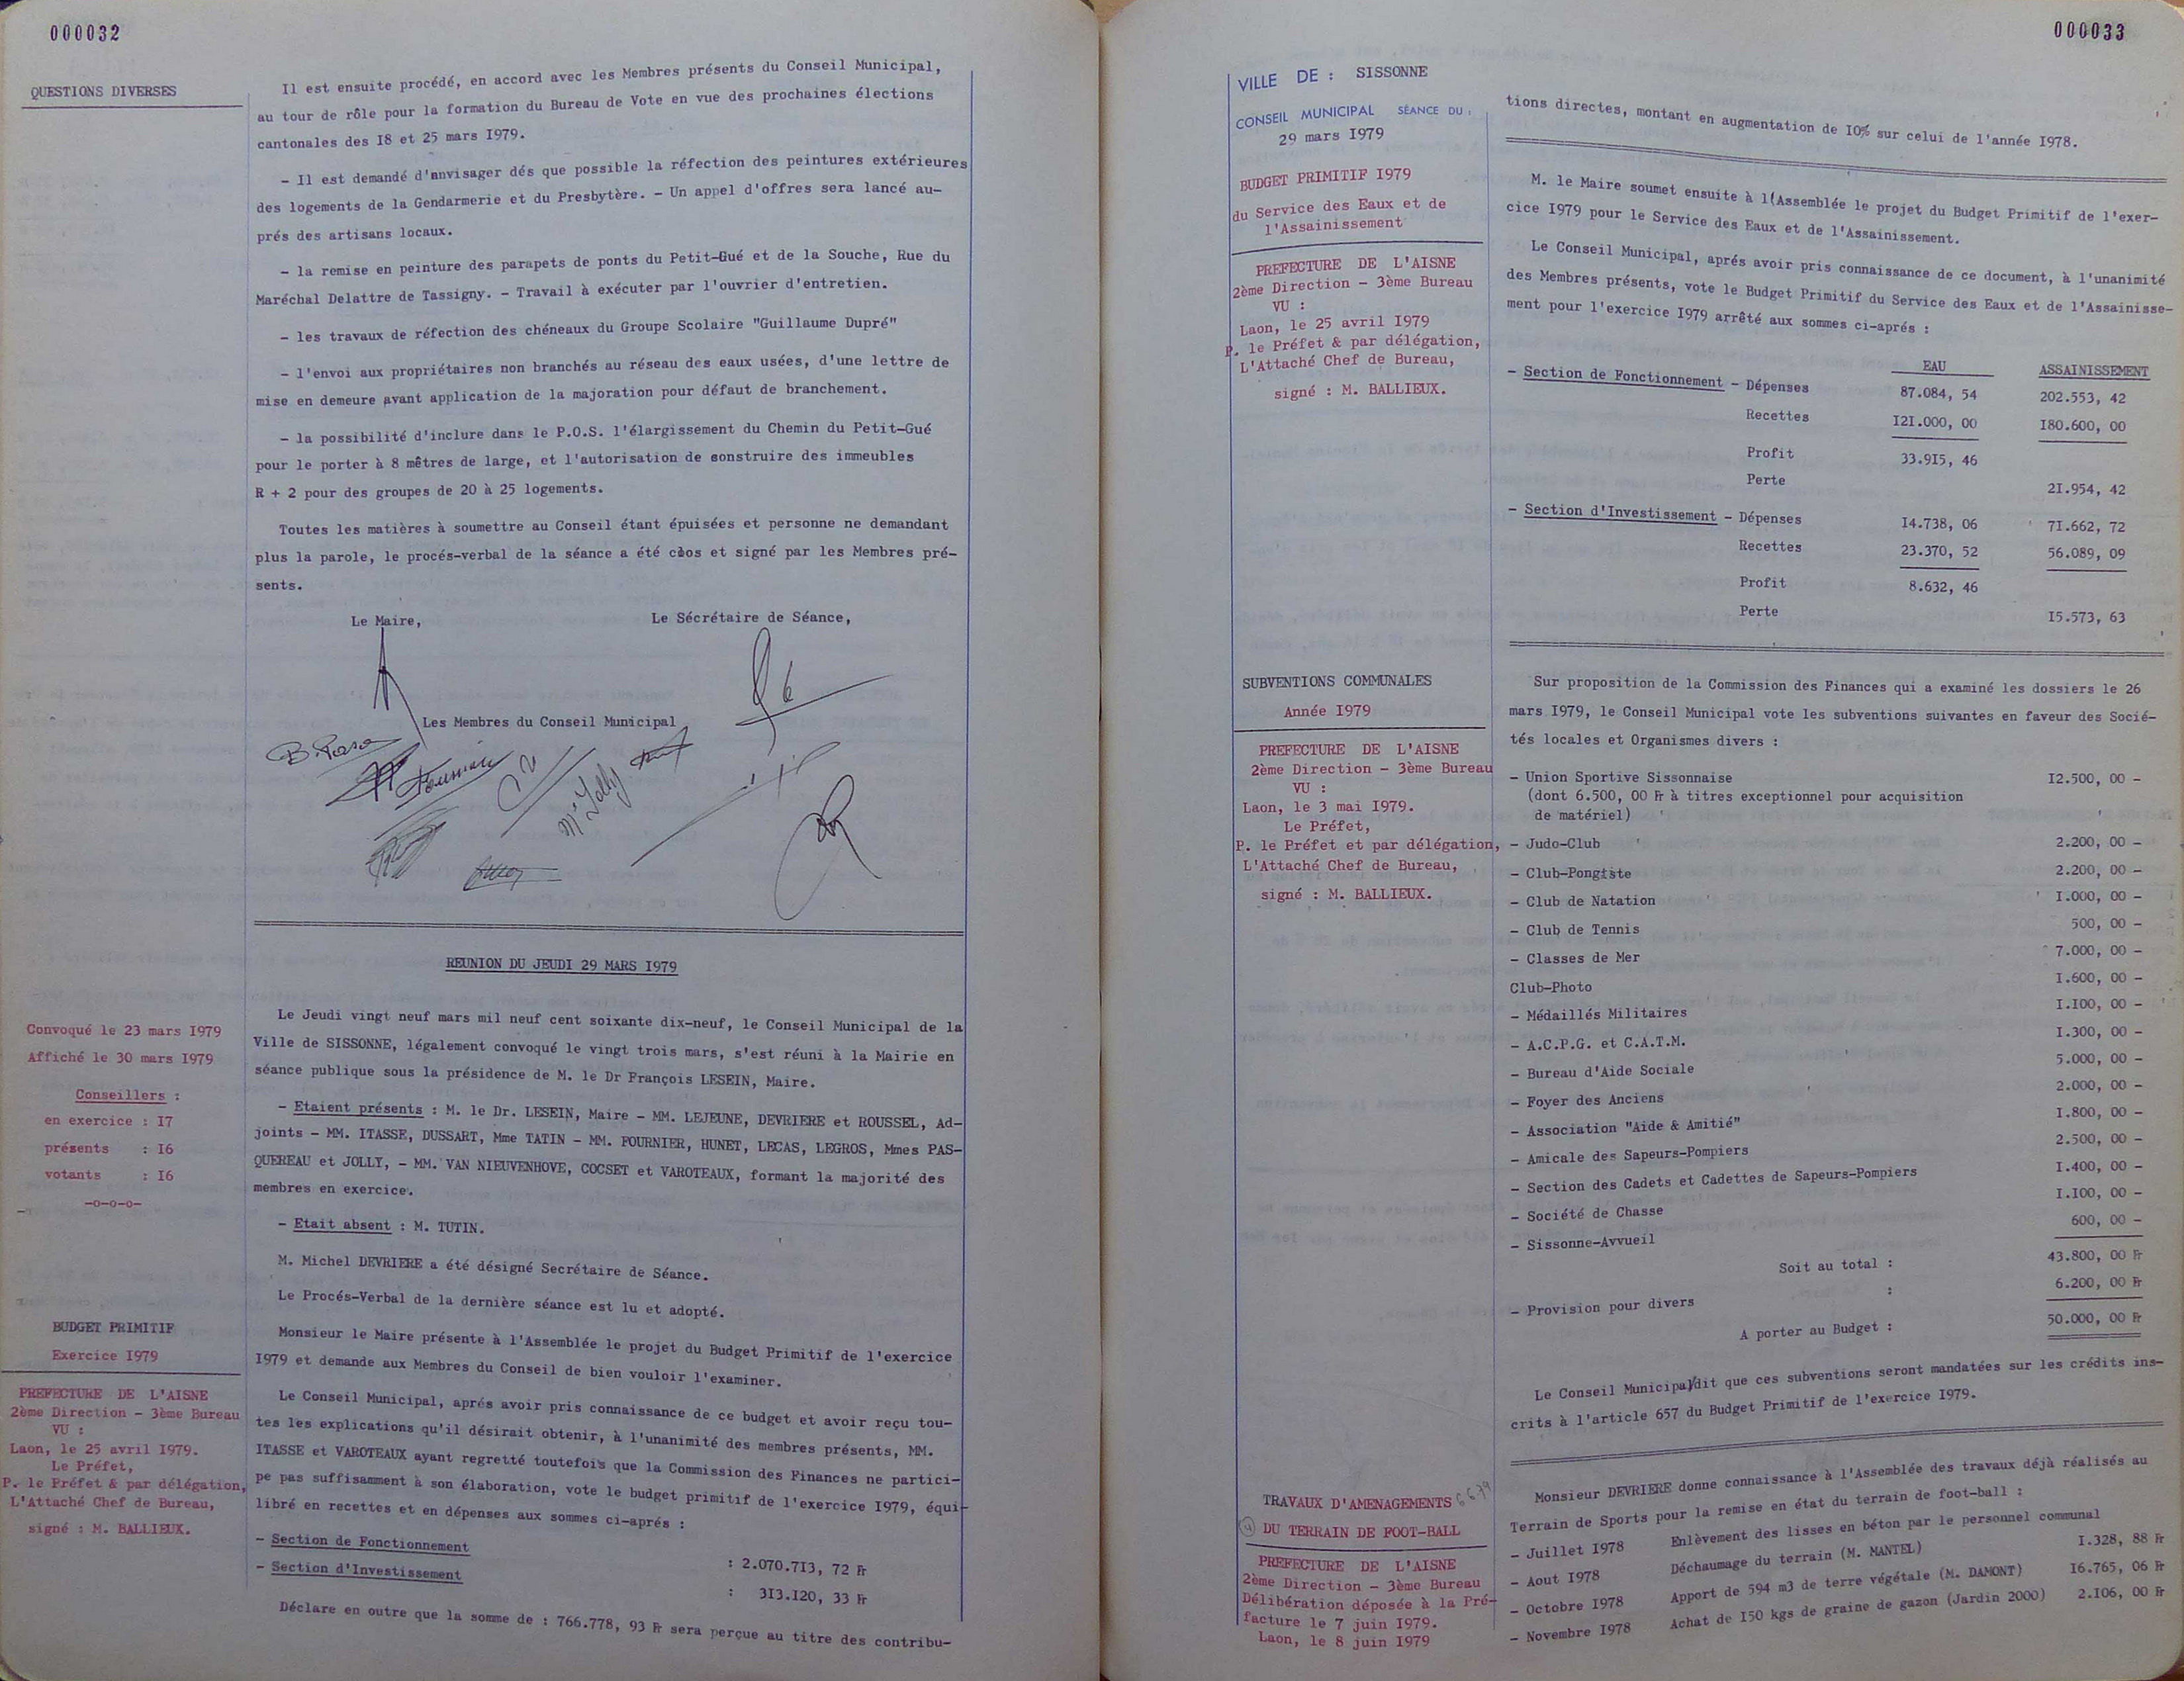 000032
QUESTIONS DIVERSES
Il est ensuite procédé, en accord avec les Membres présents du Conseil Municipal,
au tour de rôle pour la formation du Bureau de Vote en vue des prochaines élections
cantonales des I8 et 25 mars I979.
- Il est demandé d'anvisager dés que possible la réfection des peintures extérieures
des logements de la Gendarmerie et du Presbytère. - Un appel d'offres sera lancé au-
prés des artisans locaux.
- la remise en peinture des parapets de ponts du Petit-Gué et de la Souche, Rue du
Maréchal Delattre de Tassigny. - Travail à exécuter par l'ouvrier d'entretien.
- les travaux de réfection des chéneaux du Groupe Scolaire "Guillaume Dupré"
- l'envoi aux propriétaires non branchés au réseau des eaux usées, d'une lettre de
mise en demeure avant application de la majoration pour défaut de branchement.
- la possibilité d'inclure dans le P.O.S. l'élargissement du Chemin du Petit-Gué
pour le porter à 8 mêtres de large, et l'autorisation de sonstruire des immeubles
R + 2 pour des groupes de 20 à 25 logements.
Toutes les matières à soumettre au Conseil étant épuisées et personne ne demandant
plus la parole, le procés-verbal de la séance a été clos et signé par les Membres pré-
sents.
Le Maire, Le Sécrétaire de Séance,
Les Membres du Conseil Municipal
REUNION DU JEUDI 29 MARS I979
Convoqué le 23 mars I979
Affiché le 30 mars I979
Conseillers :
en exercice : I7
présents : I6
votants : I6
-o-o-o-
Le Jeudi vingt neuf mars mil neuf cent soixante dix-neuf, le Conseil Municipal de la
Ville de SISSONNE, légalement convoqué le vingt trois mars, s'est réuni à la Mairie en
séance publique sous la présidence de M. le Dr François LESEIN, Maire.
- Etaient présents : M. le Dr. LESEIN, Maire - MM. LEJEUNE, DEVRIERE et ROUSSEL, Ad-
joints - MM. ITASSE, DUSSART, Mme TATIN - MM. FOURNIER, HUNET, LECAS, LEGROS, Mmes PAS-
QUEREAU et JOLLY, - MM. VAN NIEUVENHOVE, COCSET et VAROTEAUX, formant la majorité des
membres en exercice.
- Etait absent : M. TUTIN.
M. Michel DEVRIERE a été désigné Secrétaire de Séance.
Le Procés-Verbal de la dernière séance est lu et adopté.
BUDGET PRIMITIF
Exercice I979
PREFECTURE DE L'AISNE
2ème Direction - 3ème Bureau
VU :
Laon, le 25 avril I979.
Le Préfet,
P. le Préfet & par délégation,
L'Attaché Chef de Bureau,
signé : M. BALLIEUX.
Monsieur le Maire présente à l'Assemblée le projet du Budget Primitif de l'exercice
I979 et demande aux Membres du Conseil de bien vouloir l'examiner.
Le Conseil Municipal, aprés avoir pris connaissance de ce budget et avoir reçu tou-
tes les explications qu'il désirait obtenir, à l'unanimité des membres présents, MM.
ITASSE et VAROTEAUX ayant regretté toutefois que la Commission des Finances ne partici-
pe pas suffisamment à son élaboration, vote le budget primitif de l'exercice I979, équi-
libré en recettes et en dépenses aux sommes ci-aprés :
- Section de Fonctionnement : 2.070.7I3, 72 Fr
- Section d'Investissement : 3I3.I20, 33 Fr
Déclare en outre que la somme de : 766.778, 93 Fr sera perçue au titre des contribu-
000033
VILLE DE : SISSONNE
CONSEIL MUNICIPAL SÉANCE DU :
29 mars I979
tions directes, montant en augmentation de I0% sur celui de l'année I978.
BUDGET PRIMITIF I979
du Service des Eaux et de
l'Assainissement
PREFECTURE DE L'AISNE
2ème Direction - 3ème Bureau
VU :
Laon, le 25 avril I979
P. le Préfet & par délégation,
L'Attaché Chef de Bureau,
signé : M. BALLIEUX.
M. le Maire soumet ensuite à l(Assemblée le projet du Budget Primitif de l'exer-
cice I979 pour le Service des Eaux et de l'Assainissement.
Le Conseil Municipal, aprés avoir pris connaissance de ce document, à l'unanimité
des Membres présents, vote le Budget Primitif du Service des Eaux et de l'Assainisse-
ment pour l'exercice I979 arrêté aux sommes ci-aprés :
EAU ASSAINISSEMENT
- Section de Fonctionnement - Dépenses 87.084, 54 202.553, 42
Recettes I2I.000, 00 I80.600, 00
Profit 33.9I5, 46
Perte 2I.954, 42
- Section d'Investissement - Dépenses I4.738, 06 7I.662, 72
Recettes 23.370, 52 56.089, 09
Profit 8.632, 46
Perte I5.573, 63
SUBVENTIONS COMMUNALES
Année I979
PREFECTURE DE L'AISNE
2ème Direction - 3ème Bureau
VU :
Laon, le 3 mai I979.
Le Préfet,
P. le Préfet et par délégation,
L'Attaché Chef de Bureau,
signé : M. BALLIEUX.
Sur proposition de la Commission des Finances qui a examiné les dossiers le 26
mars I979, le Conseil Municipal vote les subventions suivantes en faveur des Socié-
tés locales et Organismes divers :
- Union Sportive Sissonnaise I2.500, 00 -
(dont 6.500, 00 Fr à titres exceptionnel pour acquisition
de matériel)
- Judo-Club 2.200, 00 -
- Club-Pongiste 2.200, 00 -
- Club de Natation I.000, 00 -
- Club de Tennis 500, 00 -
- Classes de Mer 7.000, 00 -
Club-Photo I.600, 00 -
- Médaillés Militaires I.I00, 00 -
- A.C.P.G. et C.A.T.M. I.300, 00 -
- Bureau d'Aide Sociale 5.000, 00 -
- Foyer des Anciens 2.000, 00 -
- Association "Aide & Amitié" I.800, 00 -
- Amicale des Sapeurs-Pompiers 2.500, 00 -
- Section des Cadets et Cadettes de Sapeurs-Pompiers I.400, 00 -
- Société de Chasse I.I00, 00 -
- Sissonne-Avvueil 600, 00 -
Soit au total : 43.800, 00 Fr
- Provision pour divers : 6.200, 00 Fr
A porter au Budget : 50.000, 00 Fr
Le Conseil Municipal/dit que ces subventions seront mandatées sur les crédits ins-
crits à l'article 657 du Budget Primitif de l'exercice I979.
TRAVAUX D'AMENAGEMENTS
DU TERRAIN DE FOOT-BALL
PREFECTURE DE L'AISNE
2ème Direction - 3ème Bureau
Délibération déposée à la Pré-
facture le 7 juin I979.
Laon, le 8 juin I979
Monsieur DEVRIERE donne connaissance à l'Assemblée des travaux déjà réalisés au
Terrain de Sports pour la remise en état du terrain de foot-ball :
- Juillet I978 Enlèvement des lisses en béton par le personnel communal
- Aout I978 Déchaumage du terrain (M. MANTEL) I.328, 88 Fr
- Octobre I978 Apport de 594 m3 de terre végétale (M. DAMONT) I6.765, 06 Fr
- Novembre I978 Achat de I50 kgs de graine de gazon (Jardin 2000) 2.I06, 00 Fr